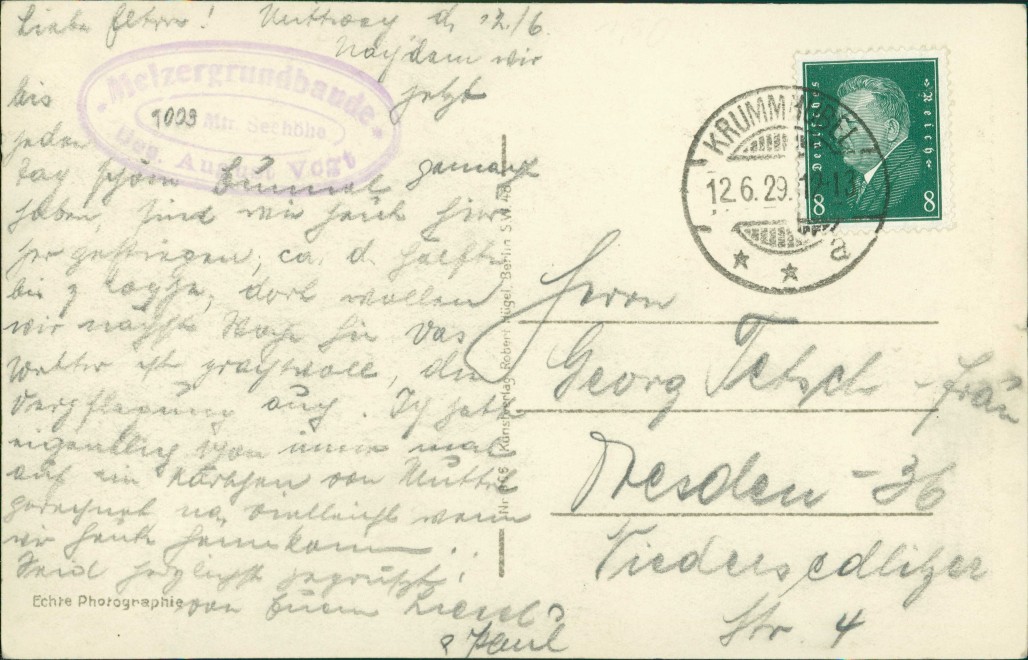 Liebe Eltern! Mittwoch d. 12./6.
Nachdem wir
bis jetzt
jeden
Tag schon Bummel gemacht
haben, sind wir heute hier-
her gestiegen, ca. d. Hälfte
bis z. Koppe, dort wollen
wir nächste Woche hin. Das
Wetter ist prachtvoll, die
Verpflegung auch. Ich hatte
eigentlich schon immer mal
auf ein Kärtchen von Muttel
gerechnet, na, vielleicht wenn
wir heute heimkommen!
Seid herzlichst gegrüßt
von Eurem Liesel
& Paul
Melzergrundbaude
1009 Mtr. Seehöhe
Bes. August Vogt
Echte Photographie
Kunstverlag Robert Hügel, Berlin S.W.
KRUMMHÜBEL
12.6.29. 12-13
a
Deutsches Reich
8 8
Herrn
Georg Tetsch - Frau
Dresden - 36
Niedersedlitzer
Str. 4